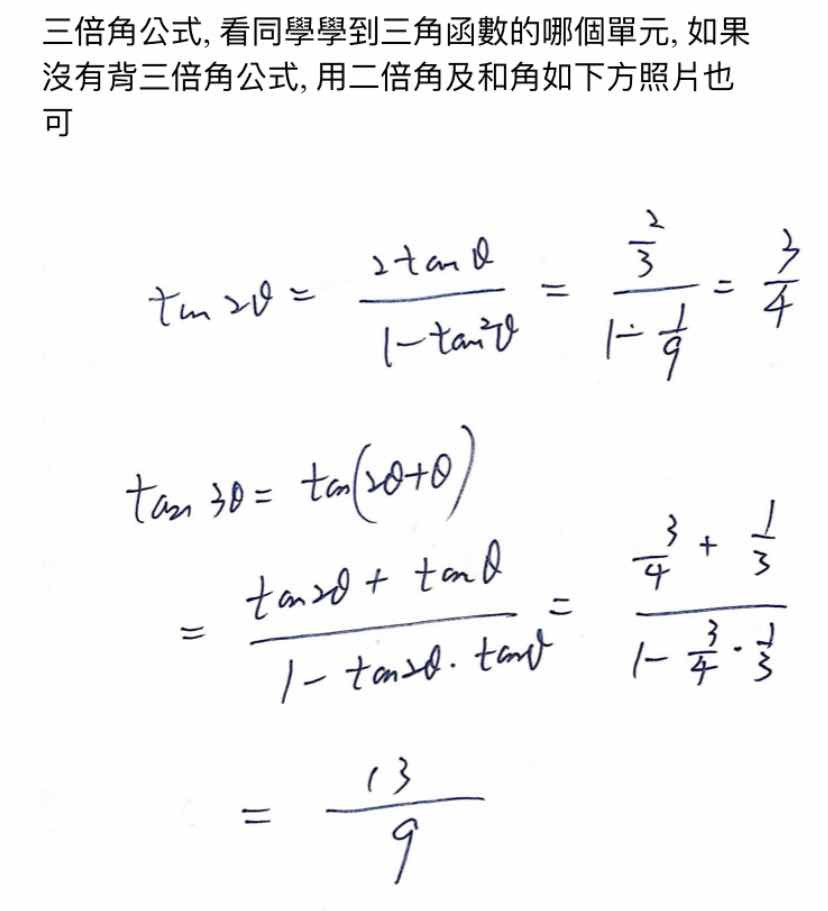 三倍角公式, 看同學學到三角函數的哪個單元, 如果
沒有背三倍角公式, 用二倍角及和角如下方照片也
可
tan 2θ = \frac{2tan θ}{1-tan²θ} = \frac{\frac{2}{3}}{1-\frac{1}{9}} = \frac{3}{4}
tan 3θ = tan(2θ+θ)
= \frac{tan2θ + tan θ}{1-tan2θ·tanθ} = \frac{\frac{3}{4}+\frac{1}{3}}{1-\frac{3}{4}·\frac{1}{3}}
= \frac{13}{9}